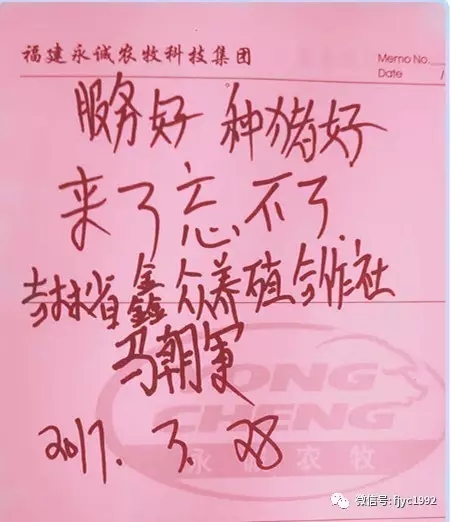 福建永诚农牧科技集团
Memo No.
Date /
服务好 种猪好
来了忘不了.
吉林省鑫众养殖合作社
马朝军
2017. 3. 28
YONG
CHENG
永诚农牧
微信号: fjyc1992